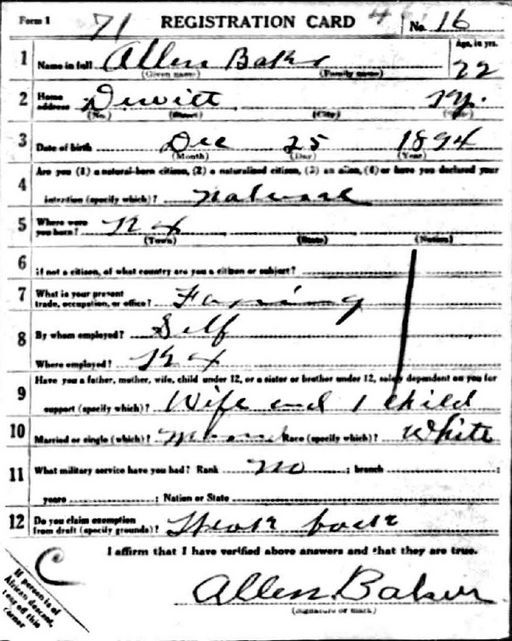 Form 1 71 REGISTRATION CARD No. 16
1 Name in full Allen Baker Age, in yrs.
(Given name) (Family name) 22
2 Home address Dewitt Ky.
(No.) (Street) (City) (State)
3 Date of birth Dec 25 1894
(Month) (Day) (Year)
4 Are you (1) a natural-born citizen, (2) a naturalized citizen, (3) an alien, (4) or have you declared your
intention (specify which)? Natural
5 Where were you born? Ky
(Town) (State) (Nation)
6 If not a citizen, of what country are you a citizen or subject?
7 What is your present trade, occupation, or office? Farming
8 By whom employed? Self
Where employed? Ky
9 Have you a father, mother, wife, child under 12, or a sister or brother under 12, solely dependent on you for
support (specify which)? Wife and 1 child
10 Married or single (which)? Married Race (specify which)? White
11 What military service have you had? Rank No ; branch ;
years ; Nation or State
12 Do you claim exemption from draft (specify grounds)? back
I affirm that I have verified above answers and that they are true.
C
Allen Baker
(Signature or mark)
If person is of
African descent,
tear off this
corner